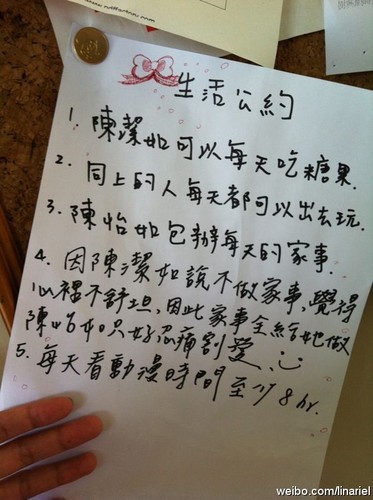 www.witterbus.com
生活公約
1. 陳潔如可以每天吃糖果.
2. 同上的人每天都可以出去玩.
3. 陳怡如包辦每天的家事.
4. 因陳潔如說不做家事,覺得
心裡不舒坦,因此家事全給她做
陳怡如只好忍痛割愛、
5. 每天看動漫時間至少8hr.
weibo.com/linariel